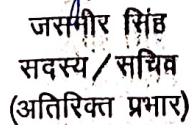 जसमीर सिंह
सदस्य / सचिव
(अतिरिक्त प्रभार)